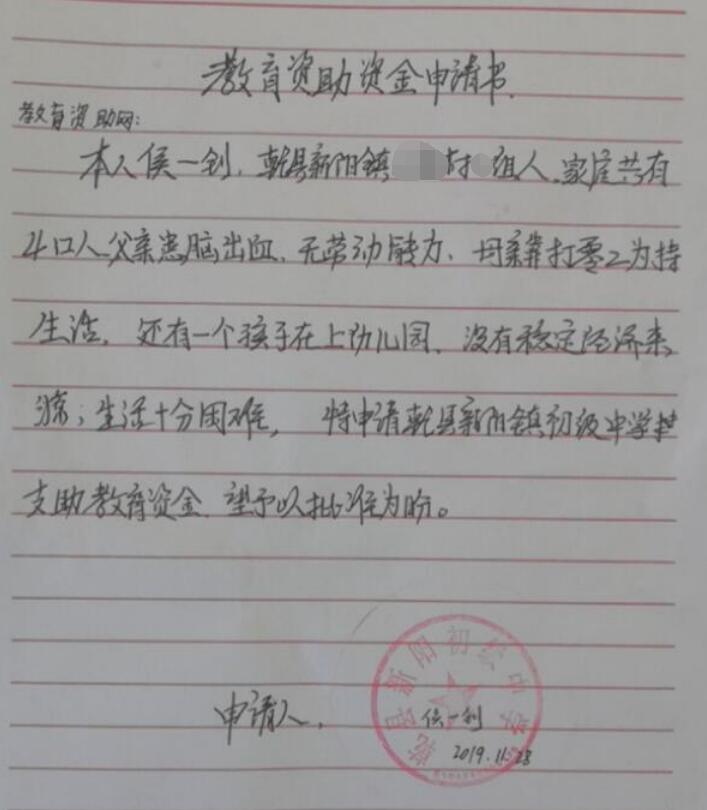 教育资助资金申请书.
教育资助网:
本人侯一钊,乾县新阳镇 村 组人,家庭共有
4口人,父亲患脑出血,无劳动能力、母亲靠打零工为持
生活,还有一个孩子在上幼儿园,没有稳定经济来
源;生活十分困难,特申请乾县新阳镇初级中学
支助教育资金,望予以批准为盼。
乾县新阳初级中学
申请人,
侯一钊
2019.11.28